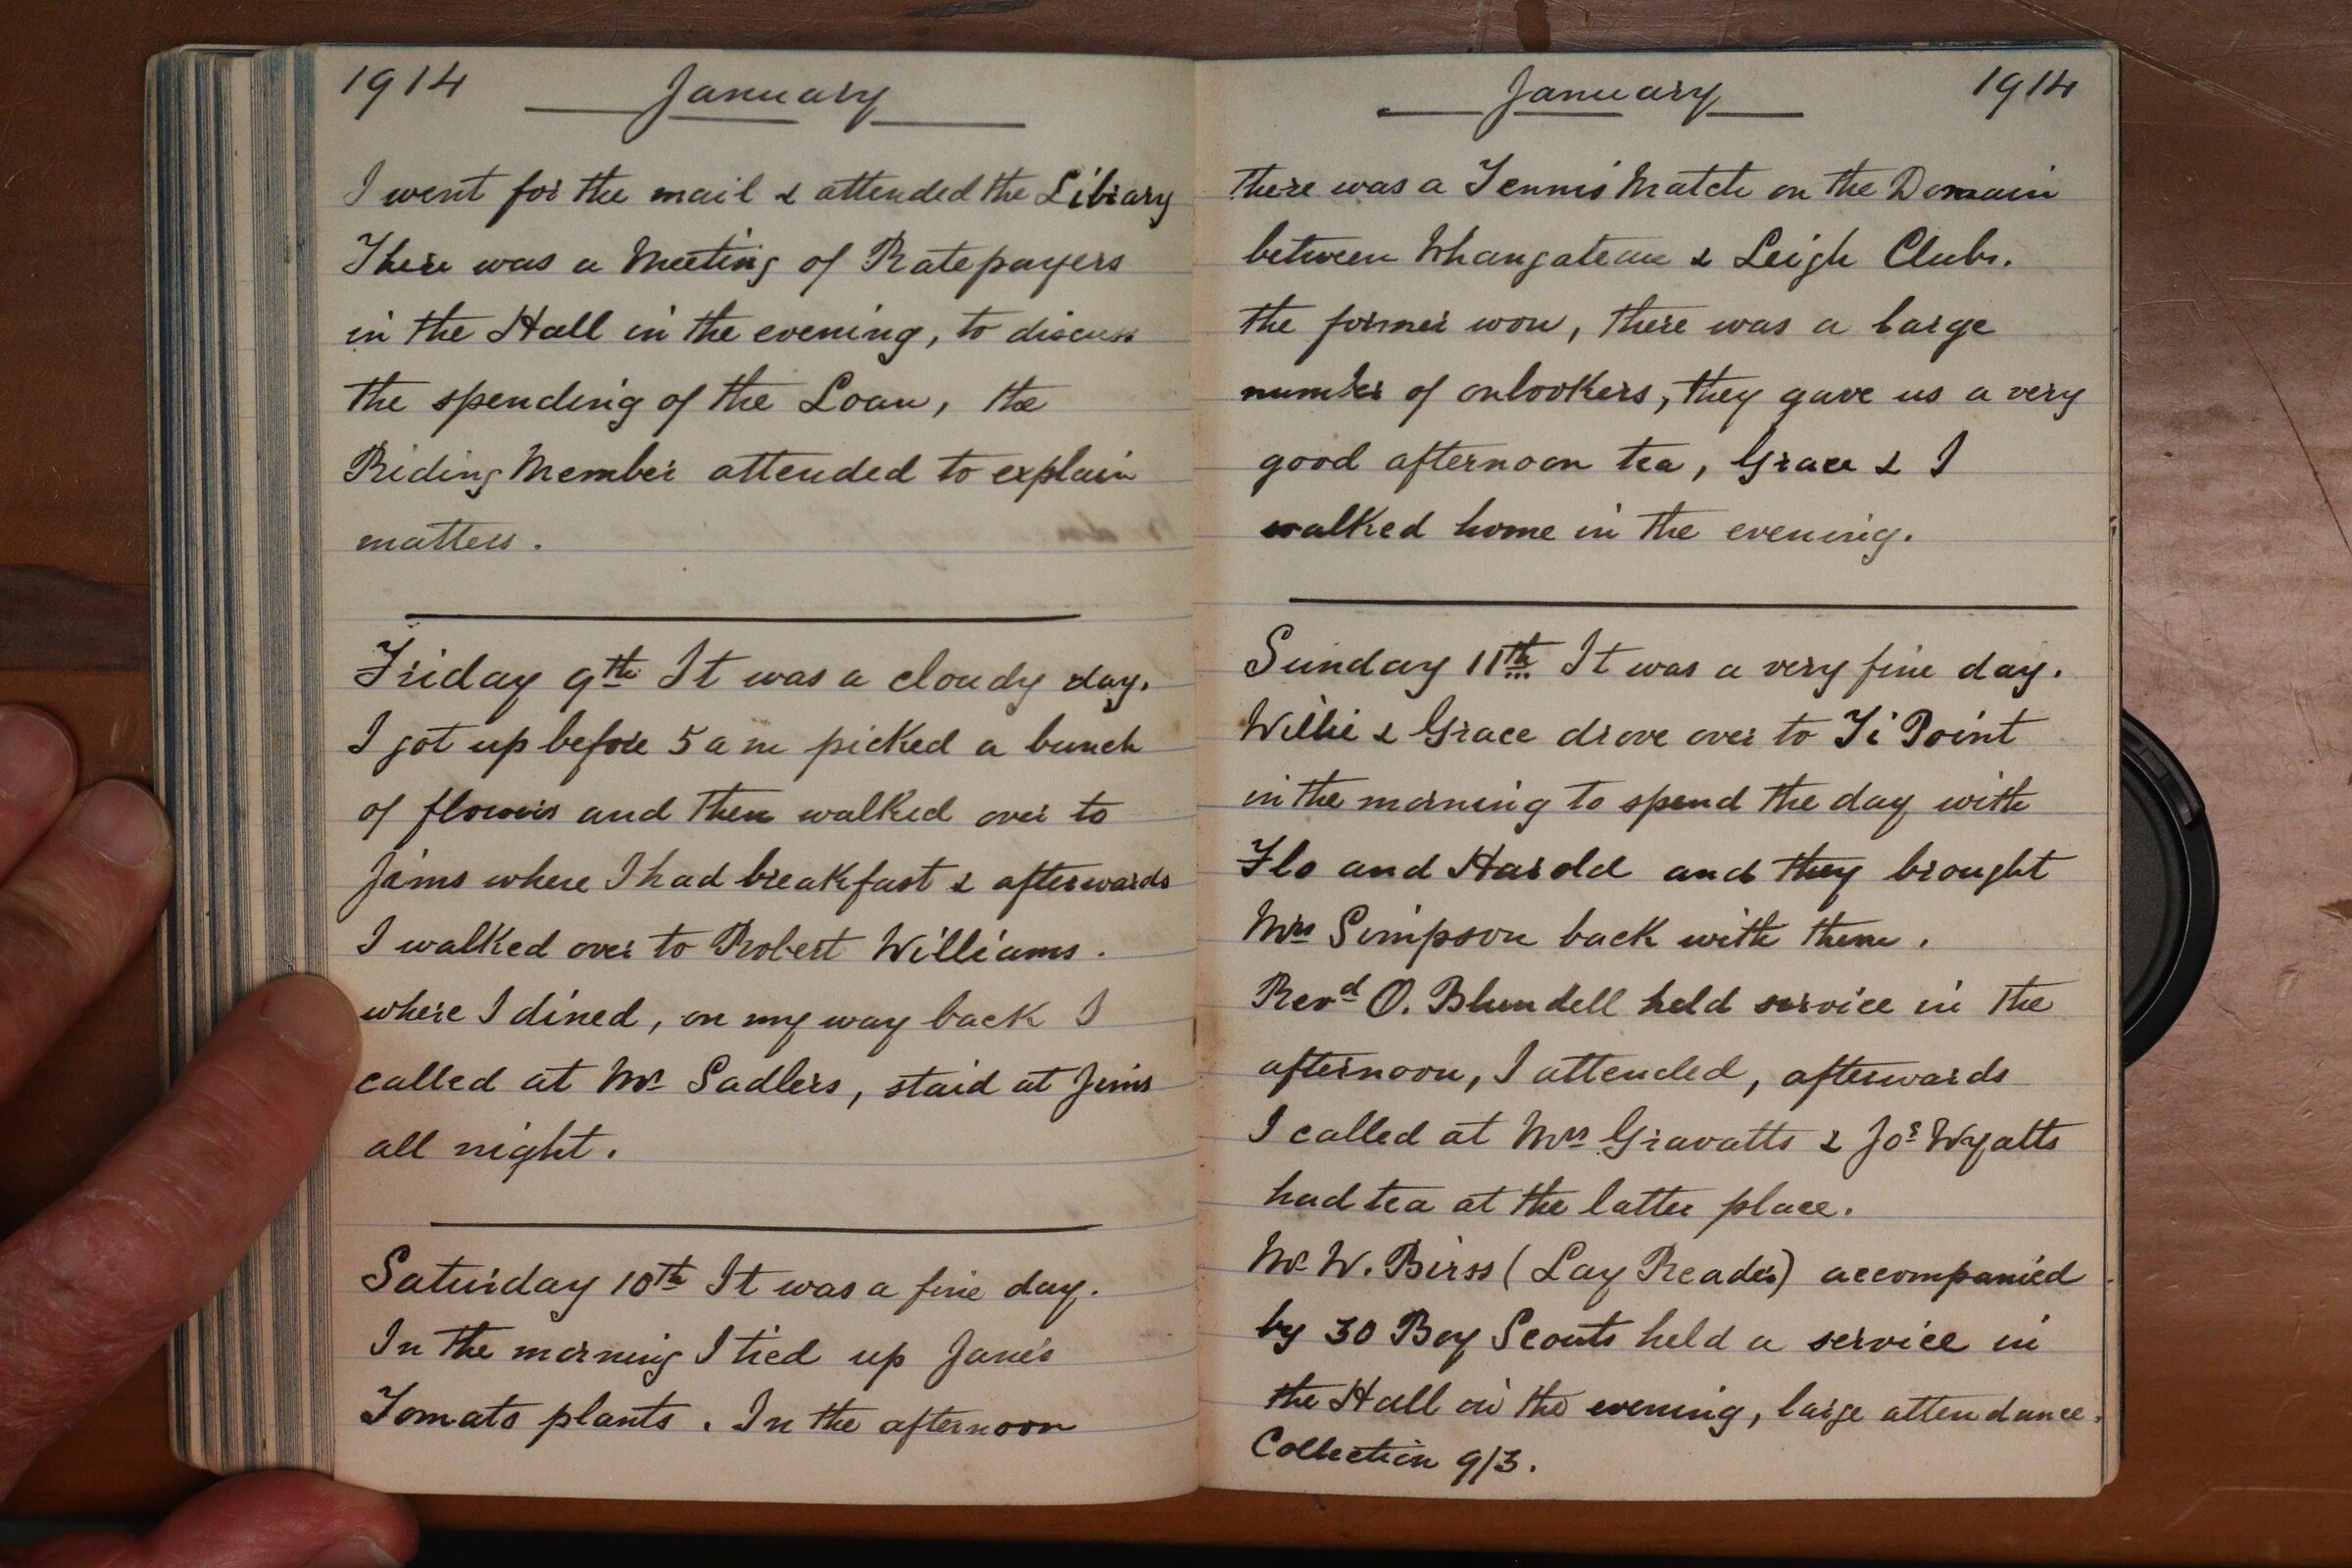 1914 January
I went for the mail & attended the Library
There was a Meeting of Ratepayers
in the Hall in the evening, to discuss
the spending of the Loan, the
Riding Member attended to explain
matters.
Friday 9th It was a cloudy day.
I got up before 5 am picked a bunch
of flowers and then walked over to
Jims where I had breakfast & afterwards
I walked over to Robert Williams.
where I dined, on my way back I
called at Mr Sadlers, staid at Jims
all night.
Saturday 10th It was a fine day.
In the morning I tied up Jane's
Tomato plants. In the afternoon
January 1914
there was a Tennis Match on the Domain
between Whangateau & Leigh Clubs.
the former won, there was a large
number of onlookers, they gave us a very
good afternoon tea, Grace & I
walked home in the evening.
Sunday 11th It was a very fine day.
Willie & Grace drove over to Ti Point
in the morning to spend the day with
Flo and Harold and they brought
Mrs Simpson back with them.
Revd O. Blundell held service in the
afternoon, I attended, afterwards
I called at Mrs Gravatts & Jos Wyatts
had tea at the latter place.
Mr W. Birss (Lay Reader) accompanied
by 30 Boy Scouts held a service in
the Hall in the evening, large attendance.
Collection 9/3.